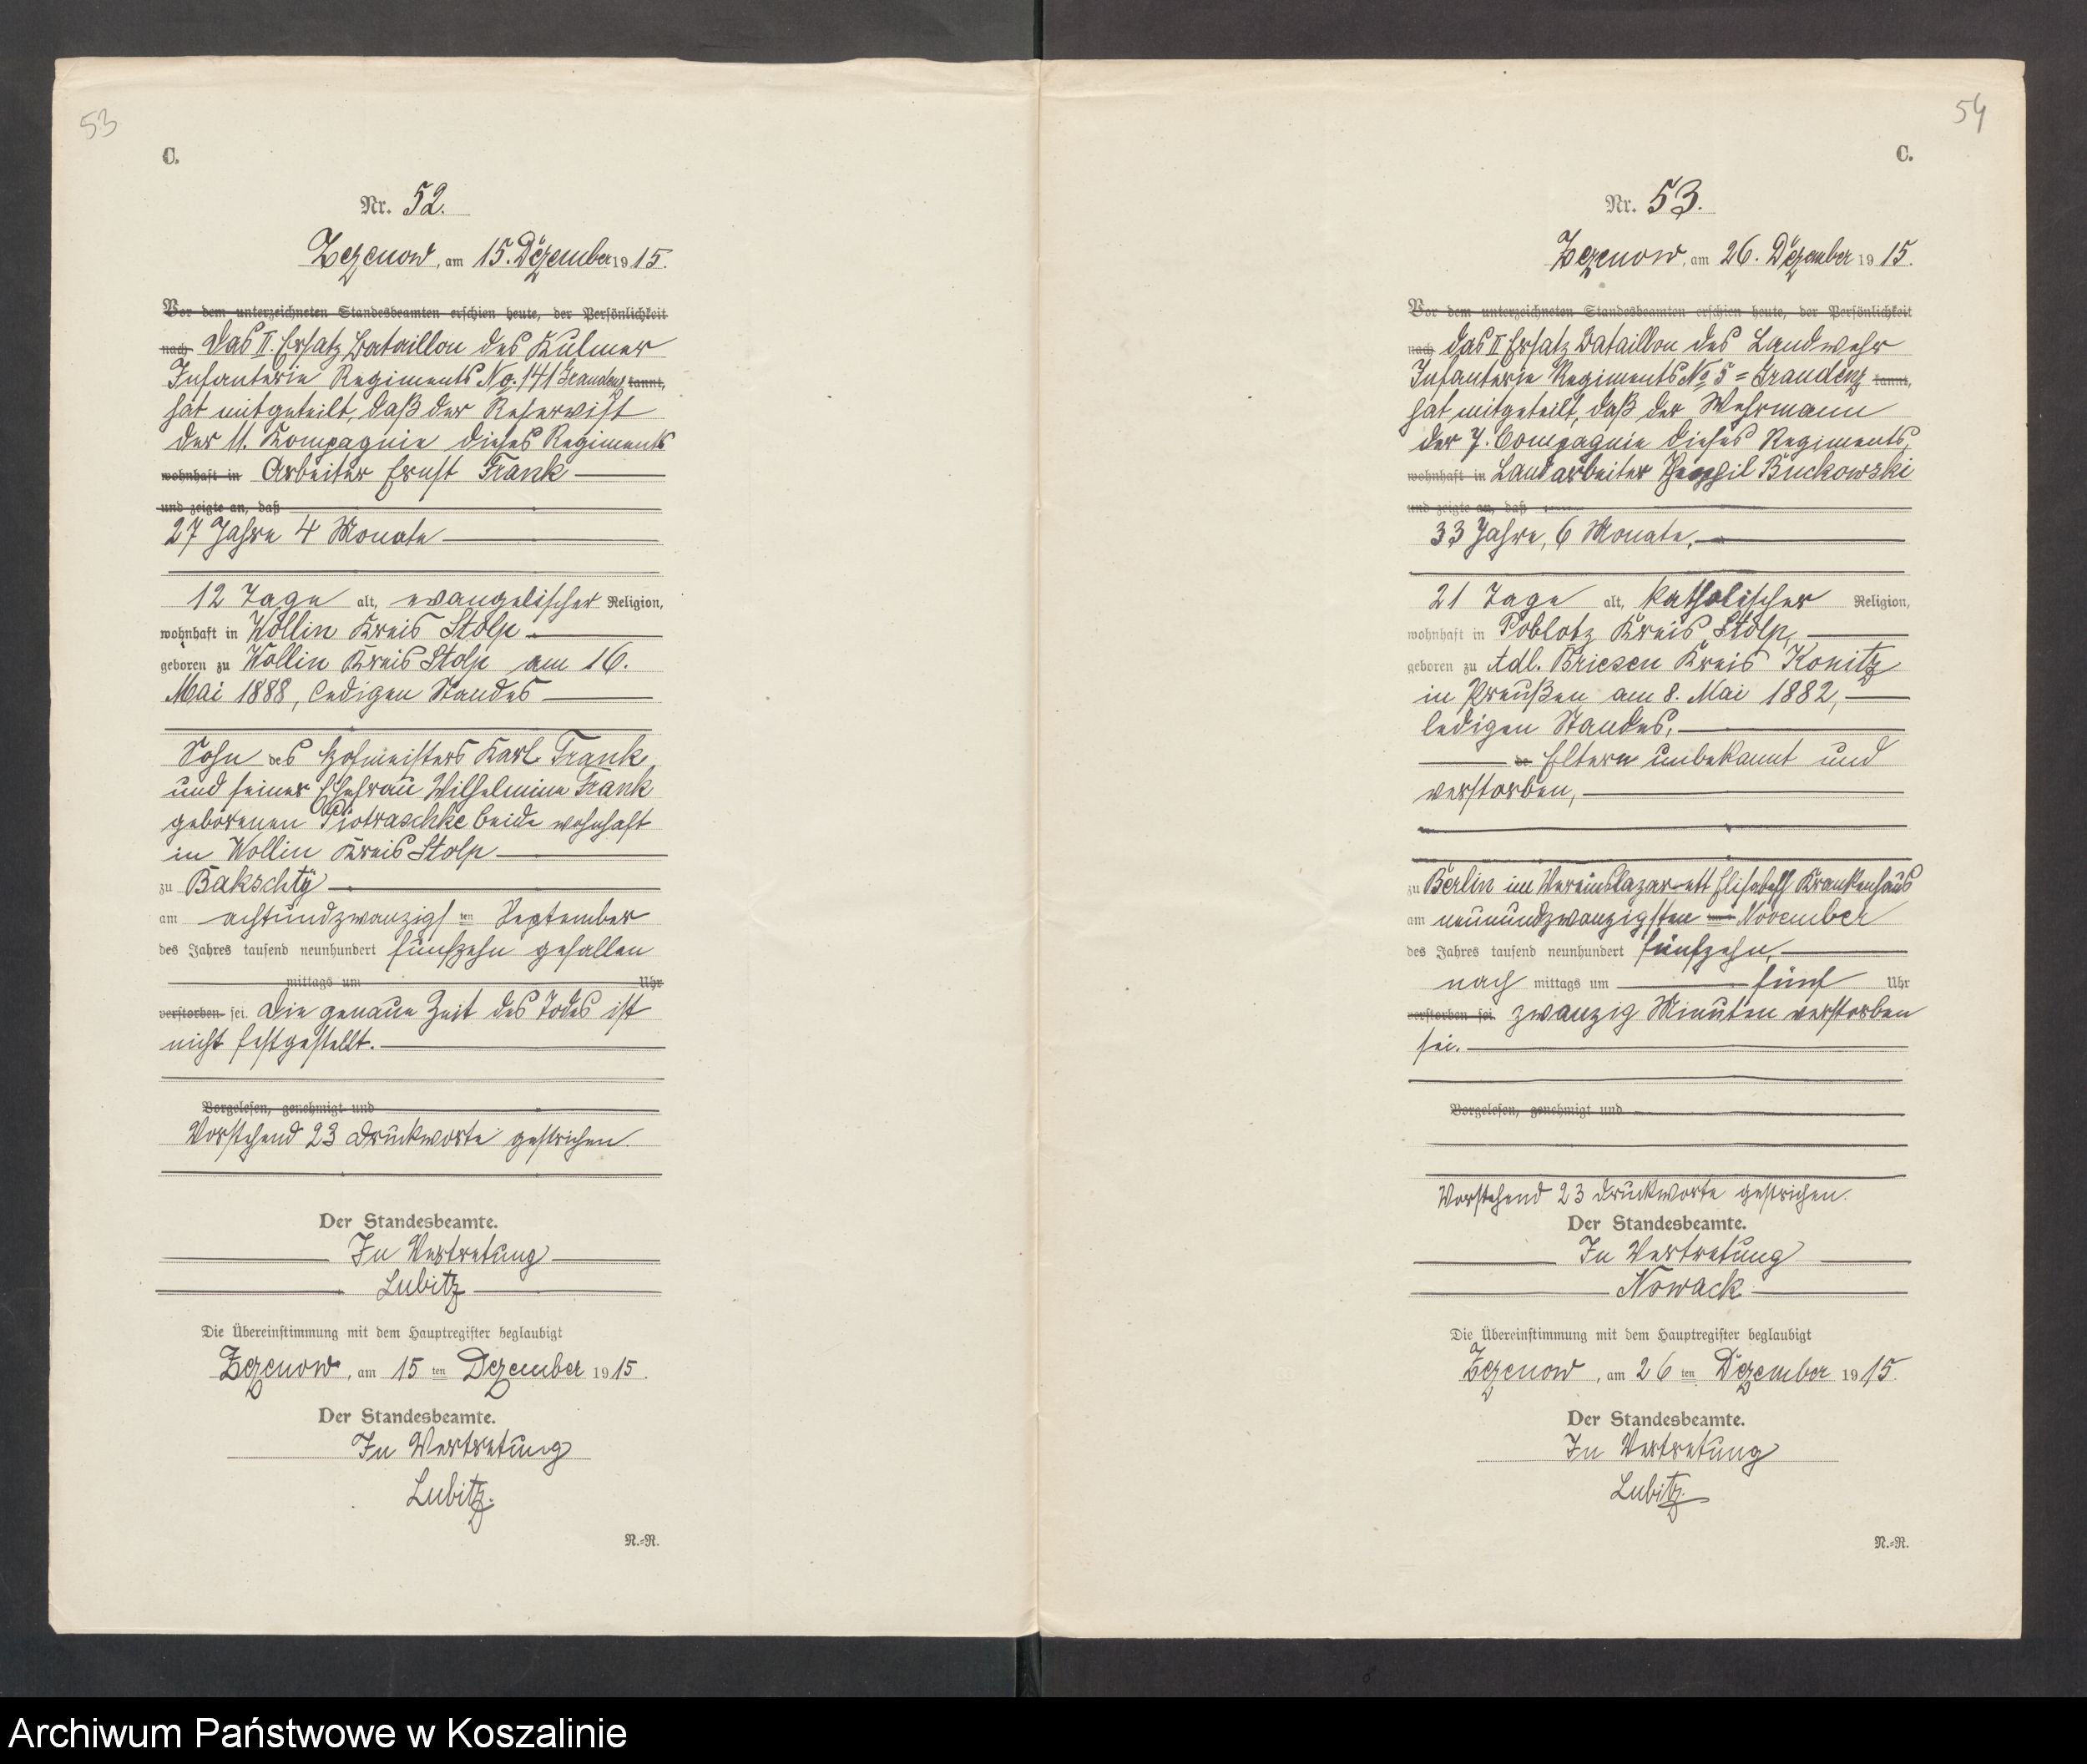 53
C.
Nr. 52.
Zezenow, am 15. Dezember 1915.
Vor dem unterzeichneten Standesbeamten erschien heute, der Persönlichkeit
nach das II. Ersatz Bataillon des Kulmer
Infanterie Regiments No. 141 Graudenz kannt,
hat mitgeteilt, daß der Reservist
der 11. Kompagnie dieses Regiments
wohnhaft in Arbeiter Ernst Frank
und zeigte an, daß
27 Jahre 4 Monate
12 Tage alt, evangelischer Religion,
wohnhaft in Wollin Kreis Stolp
geboren zu Wollin Kreis Stolp am 16.
Mai 1888, ledigen Standes
Sohn des Hofmeisters Karl Frank
und seiner Ehefrau Wilhelmine Frank
geborenen Piotraschke beide wohnhaft
in Wollin Kreis Stolp
zu Bakschty
am achtundzwanzigsten September
des Jahres tausend neunhundert fünfzehn gefallen
mittags um Uhr
verstorben sei. Die genaue Zeit des Todes ist
nicht festgestellt.
Vorgelesen, genehmigt und
Vorstehend 23 Druckworte gestrichen.
Der Standesbeamte.
In Vertretung
Lubitz
Die Übereinstimmung mit dem Hauptregister beglaubigt
Zezenow, am 15 ten Dezember 1915.
Der Standesbeamte.
In Vertretung
Lubitz.
N.=R.
54
C.
Nr. 53.
Zezenow, am 26. Dezember 1915.
Vor dem unterzeichneten Standesbeamten erschien heute, der Persönlichkeit
nach das II Ersatz Bataillon des Landwehr
Infanterie Regiments No 5 = Graudenz kannt,
hat mitgeteilt, daß der Wehrmann
der 7. Compagnie dieses Regiments,
wohnhaft in Landarbeiter Buckowski
und zeigte an, daß
33 Jahre, 6 Monate,
21 Tage alt, katholischer Religion,
wohnhaft in Poblotz Kreis Stolp,
geboren zu Adl. Briesen Kreis Konitz
in Preußen am 8. Mai 1882,
ledigen Standes,
de Eltern unbekannt und
verstorben,
zu Berlin im Vereinslazarett Elisabeth Krankenhaus
am neunundzwanzigsten ten November
des Jahres tausend neunhundert fünfzehn,
nach mittags um fünf Uhr
verstorben sei. zwanzig Minuten verstorben
sei.
Vorgelesen, genehmigt und
Vorstehend 23 Druckworte gestrichen.
Der Standesbeamte.
In Vertretung
Nowack
Die Übereinstimmung mit dem Hauptregister beglaubigt
Zezenow, am 26 ten Dezember 1915.
Der Standesbeamte.
In Vertretung
Lubitz.
N.=R.
Archiwum Państwowe w Koszalinie